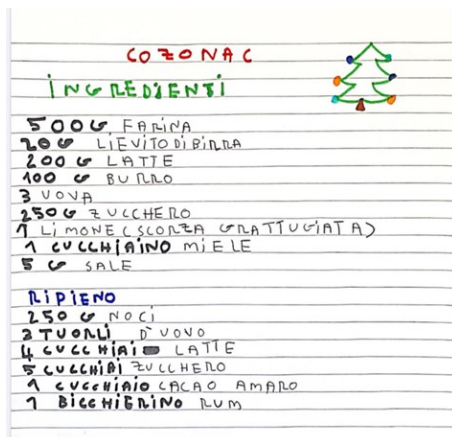 COZONAC
INGREDIENTI
500G FARINA
20G LIEVITO DI BIRRA
200 G LATTE
100 G BURRO
3 UOVA
250G ZUCCHERO
1 LIMONE (SCORZA GRATTUGIATA)
1 CUCCHIAINO MIELE
5 G SALE
RIPIENO
250 G NOCI
3 TUORLI D'UOVO
4 CUCCHIAI LATTE
5 CUCCHIAI ZUCCHERO
1 CUCCHIAIO CACAO AMARO
1 BICCHIERINO RUM